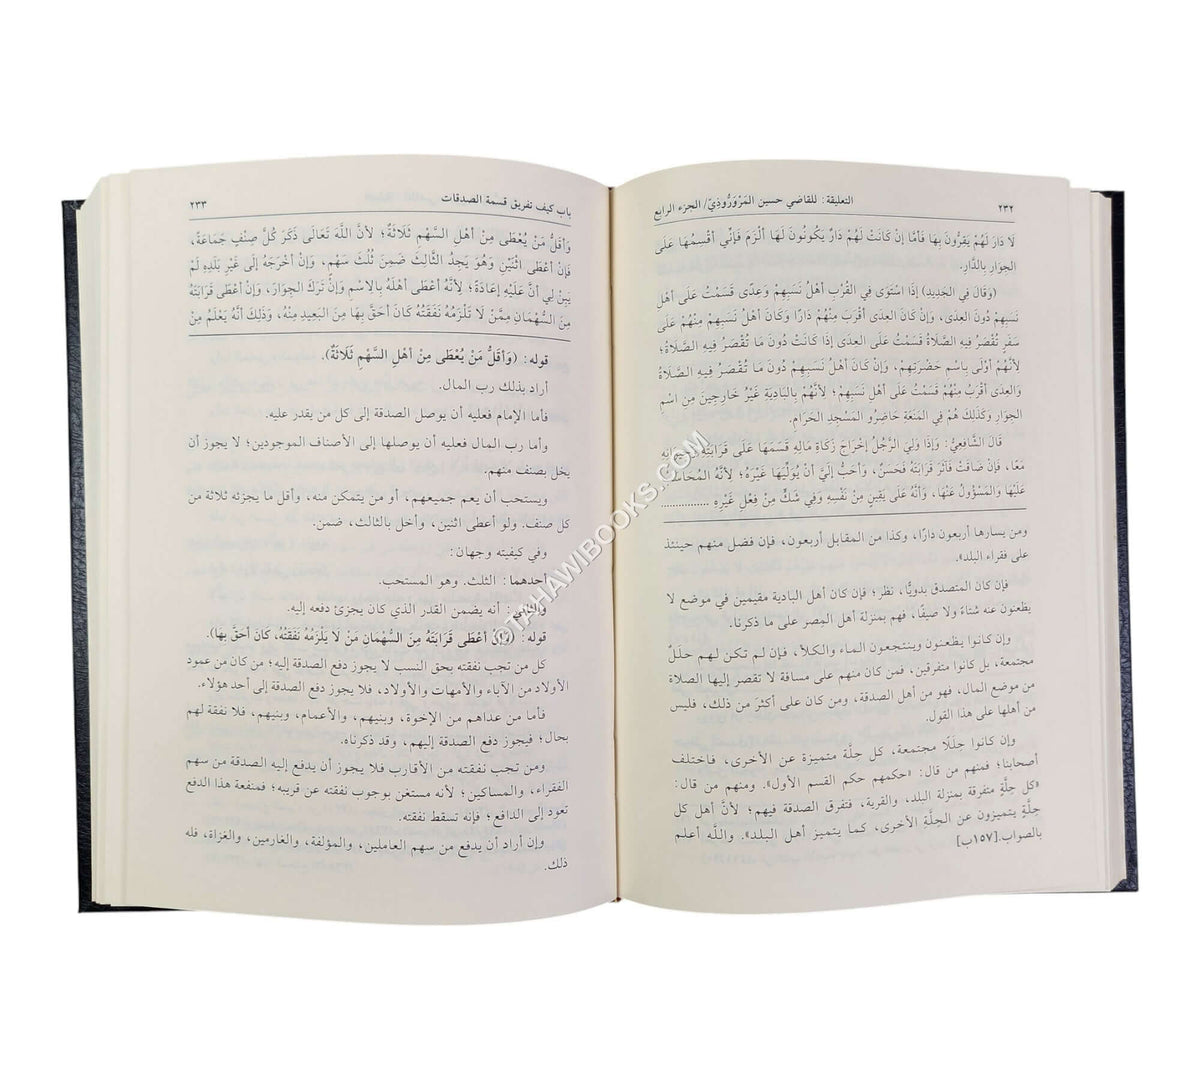 ٢٣٢ التعليقة: للقاضي حسين المَرْوَرُّوذِيّ/ الجزء الرابع
لَا دَارَ لَهُمْ يَقَرُّونَ بِهَا فَأَمَّا إِنْ كَانَتْ لَهُمْ دَارٌ يَكُونُونَ لَهَا أَلْزَمَ فَإِنِّي أَقْسِمُهَا عَلَى
الجِوَارِ بِالدَّارِ.
(وَقَالَ فِي الجَدِيدِ) إِذَا اسْتَوَى فِي القُرْبِ أَهْلُ نَسَبِهِمْ وَعِدًى قَسَمْتُ عَلَى أَهْلِ
نَسَبِهِمْ دُونَ العِدَى، وَإِنْ كَانَ العِدَى أَقْرَبَ مِنْهُمْ دَارًا وَكَانَ أَهْلُ نَسَبِهِمْ مِنْهُمْ عَلَى
سَفَرٍ تُقْصَرُ فِيهِ الصَّلَاةُ قَسَمْتُ عَلَى العِدَى إِذَا كَانَتْ دُونَ مَا تُقْصَرُ فِيهِ الصَّلَاةُ؛
لِأَنَّهُمْ أَوْلَى بِاسْمِ حَضْرَتِهِمْ، وَإِنْ كَانَ أَهْلُ نَسَبِهِمْ دُونَ مَا تُقْصَرُ فِيهِ الصَّلَاةُ
وَالعِدَى أَقْرَبُ مِنْهُمْ قَسَمْتُ عَلَى أَهْلِ نَسَبِهِمْ؛ لِأَنَّهُمْ بِالبَادِيَةِ غَيْرُ خَارِجِينَ مِنَ اسْمِ
الجِوَارِ وَكَذَلِكَ هُمْ فِي المَنَعَةِ حَاضِرُو المَسْجِدِ الحَرَامِ.
قَالَ الشَّافِعِيُّ: وَإِذَا وَلِيَ الرَّجُلُ إِخْرَاجَ زَكَاةِ مَالِهِ قَسَمَهَا عَلَى قَرَابَتِهِ
مَعًا، فَإِنْ ضَاقَتْ فَآثَرَ قَرَابَتَهُ فَحَسَنٌ، وَأَحَبُّ إِلَيَّ أَنْ يُوَلِّيَهَا غَيْرَهُ؛ لِأَنَّهُ المُحَاسَبُ
عَلَيْهَا وَالمَسْؤُولُ عَنْهَا، وَأَنَّهُ عَلَى يَقِينٍ مِنْ نَفْسِهِ وَفِي شَكٍّ مِنْ فِعْلِ غَيْرِهِ .................
ومن يسارها أربعون دارًا، وكذا من المقابل أربعون، فإن فضل منهم حينئذ
على فقراء البلد».
فإن كان المتصدق بدويًّا، نظر؛ فإن كان أهل البادية مقيمين في موضع لا
يظعنون عنه شتاءً ولا صيفًا، فهم بمنزلة أهل المِصر على ما ذكرنا.
وإن كانوا يظعنون وينتجعون الماء والكلأ، فإن لم تكن لهم حلَلٌ
مجتمعة، بل كانوا متفرقين، فمن كان منهم على مسافة لا تقصر إليها الصلاة
من موضع المال، فهو من أهل الصدقة، ومن كان على أكثرَ من ذلك، فليس
من أهلها على هذا القول.
وإن كانوا حِلَلًا مجتمعة، كل حِلَّة متميزة عن الأخرى، فاختلف
أصحابنا؛ فمنهم من قال: «حكمهم حكم القسم الأول». ومنهم من قال:
«كل حِلَّةٍ متفرقة بمنزلة البلد، والقرية، فتفرق الصدقة فيهم؛ لأنَّ أهل كل
حِلَّةٍ يتميزون عن الحِلَّةِ الأخرى، كما يتميز أهل البلد». واللَّه أعلم
بالصواب.[١٥٧ب]
باب كيف تفريق قسمة الصدقات ٢٣٣
وَأَقَلُّ مَنْ يُعْطَى مِنْ أَهْلِ السَّهْمِ ثَلَاثَةٌ؛ لأَنَّ اللَّهَ تَعَالَى ذَكَرَ كُلَّ صِنْفٍ جَمَاعَةً،
فَإِنْ أَعْطَى اثْنَيْنِ وَهُوَ يَجِدُ الثَّالِثَ ضَمِنَ ثُلُثَ سَهْمٍ، وَإِنْ أَخْرَجَهُ إِلَى غَيْرِ بَلَدِهِ لَمْ
يَبِنْ لِي أَنَّ عَلَيْهِ إِعَادَةً؛ لِأَنَّهُ أَعْطَى أَهْلَهُ بِالِاسْمِ وَإِنْ تَرَكَ الجِوَارَ، وَإِنْ أَعْطَى قَرَابَتَهُ
مِنَ السُّهْمَانِ مِمَّنْ لَا تَلْزَمُهُ نَفَقَتُهُ كَانَ أَحَقَّ بِهَا مِنَ البَعِيدِ مِنْهُ، وَذَلِكَ أَنَّهُ يَعْلَمُ مِنْ
قوله: (وَأَقَلُّ مَنْ يُعْطَى مِنْ أَهْلِ السَّهْمِ ثَلَاثَةٌ).
أراد بذلك رب المال.
فأما الإمام فعليه أن يوصل الصدقة إلى كل من يقدر عليه.
وأما رب المال فعليه أن يوصلها إلى الأصناف الموجودين؛ لا يجوز أن
يخل بصنف منهم.
ويستحب أن يعم جميعهم، أو من يتمكن منه، وأقل ما يجزئه ثلاثة من
كل صنف. ولو أعطى اثنين، وأخل بالثالث، ضمن.
وفي كيفيته وجهان:
أحدهما: الثلث. وهو المستحب.
والثاني: أنه يضمن القدر الذي كان يجزئ دفعه إليه.
قوله: (وَإِنْ أَعْطَى قَرَابَتَهُ مِنَ السُّهْمَانِ مَنْ لَا يَلْزَمُهُ نَفَقَتُهُ، كَانَ أَحَقَّ بِهَا).
كل من تجب نفقته بحق النسب لا يجوز دفع الصدقة إليه؛ من كان من عمود
الأولاد من الآباء والأمهات والأولاد، فلا يجوز دفع الصدقة إلى أحد هؤلاء.
فأما من عداهم من الإخوة، وبنيهم، والأعمام، وبنيهم، فلا نفقة لهم
بحال؛ فيجوز دفع الصدقة إليهم، وقد ذكرناه.
ومن تجب نفقته من الأقارب فلا يجوز أن يدفع إليه الصدقة من سهم
الفقراء، والمساكين؛ لأنه مستغن بوجوب نفقته عن قريبه؛ فمنفعة هذا الدفع
تعود إلى الدافع؛ فإنه تسقط نفقته.
وإن أراد أن يدفع من سهم العاملين، والمؤلفة، والغارمين، والغزاة، فله
ذلك.
©TAHAWIBOOKS.COM